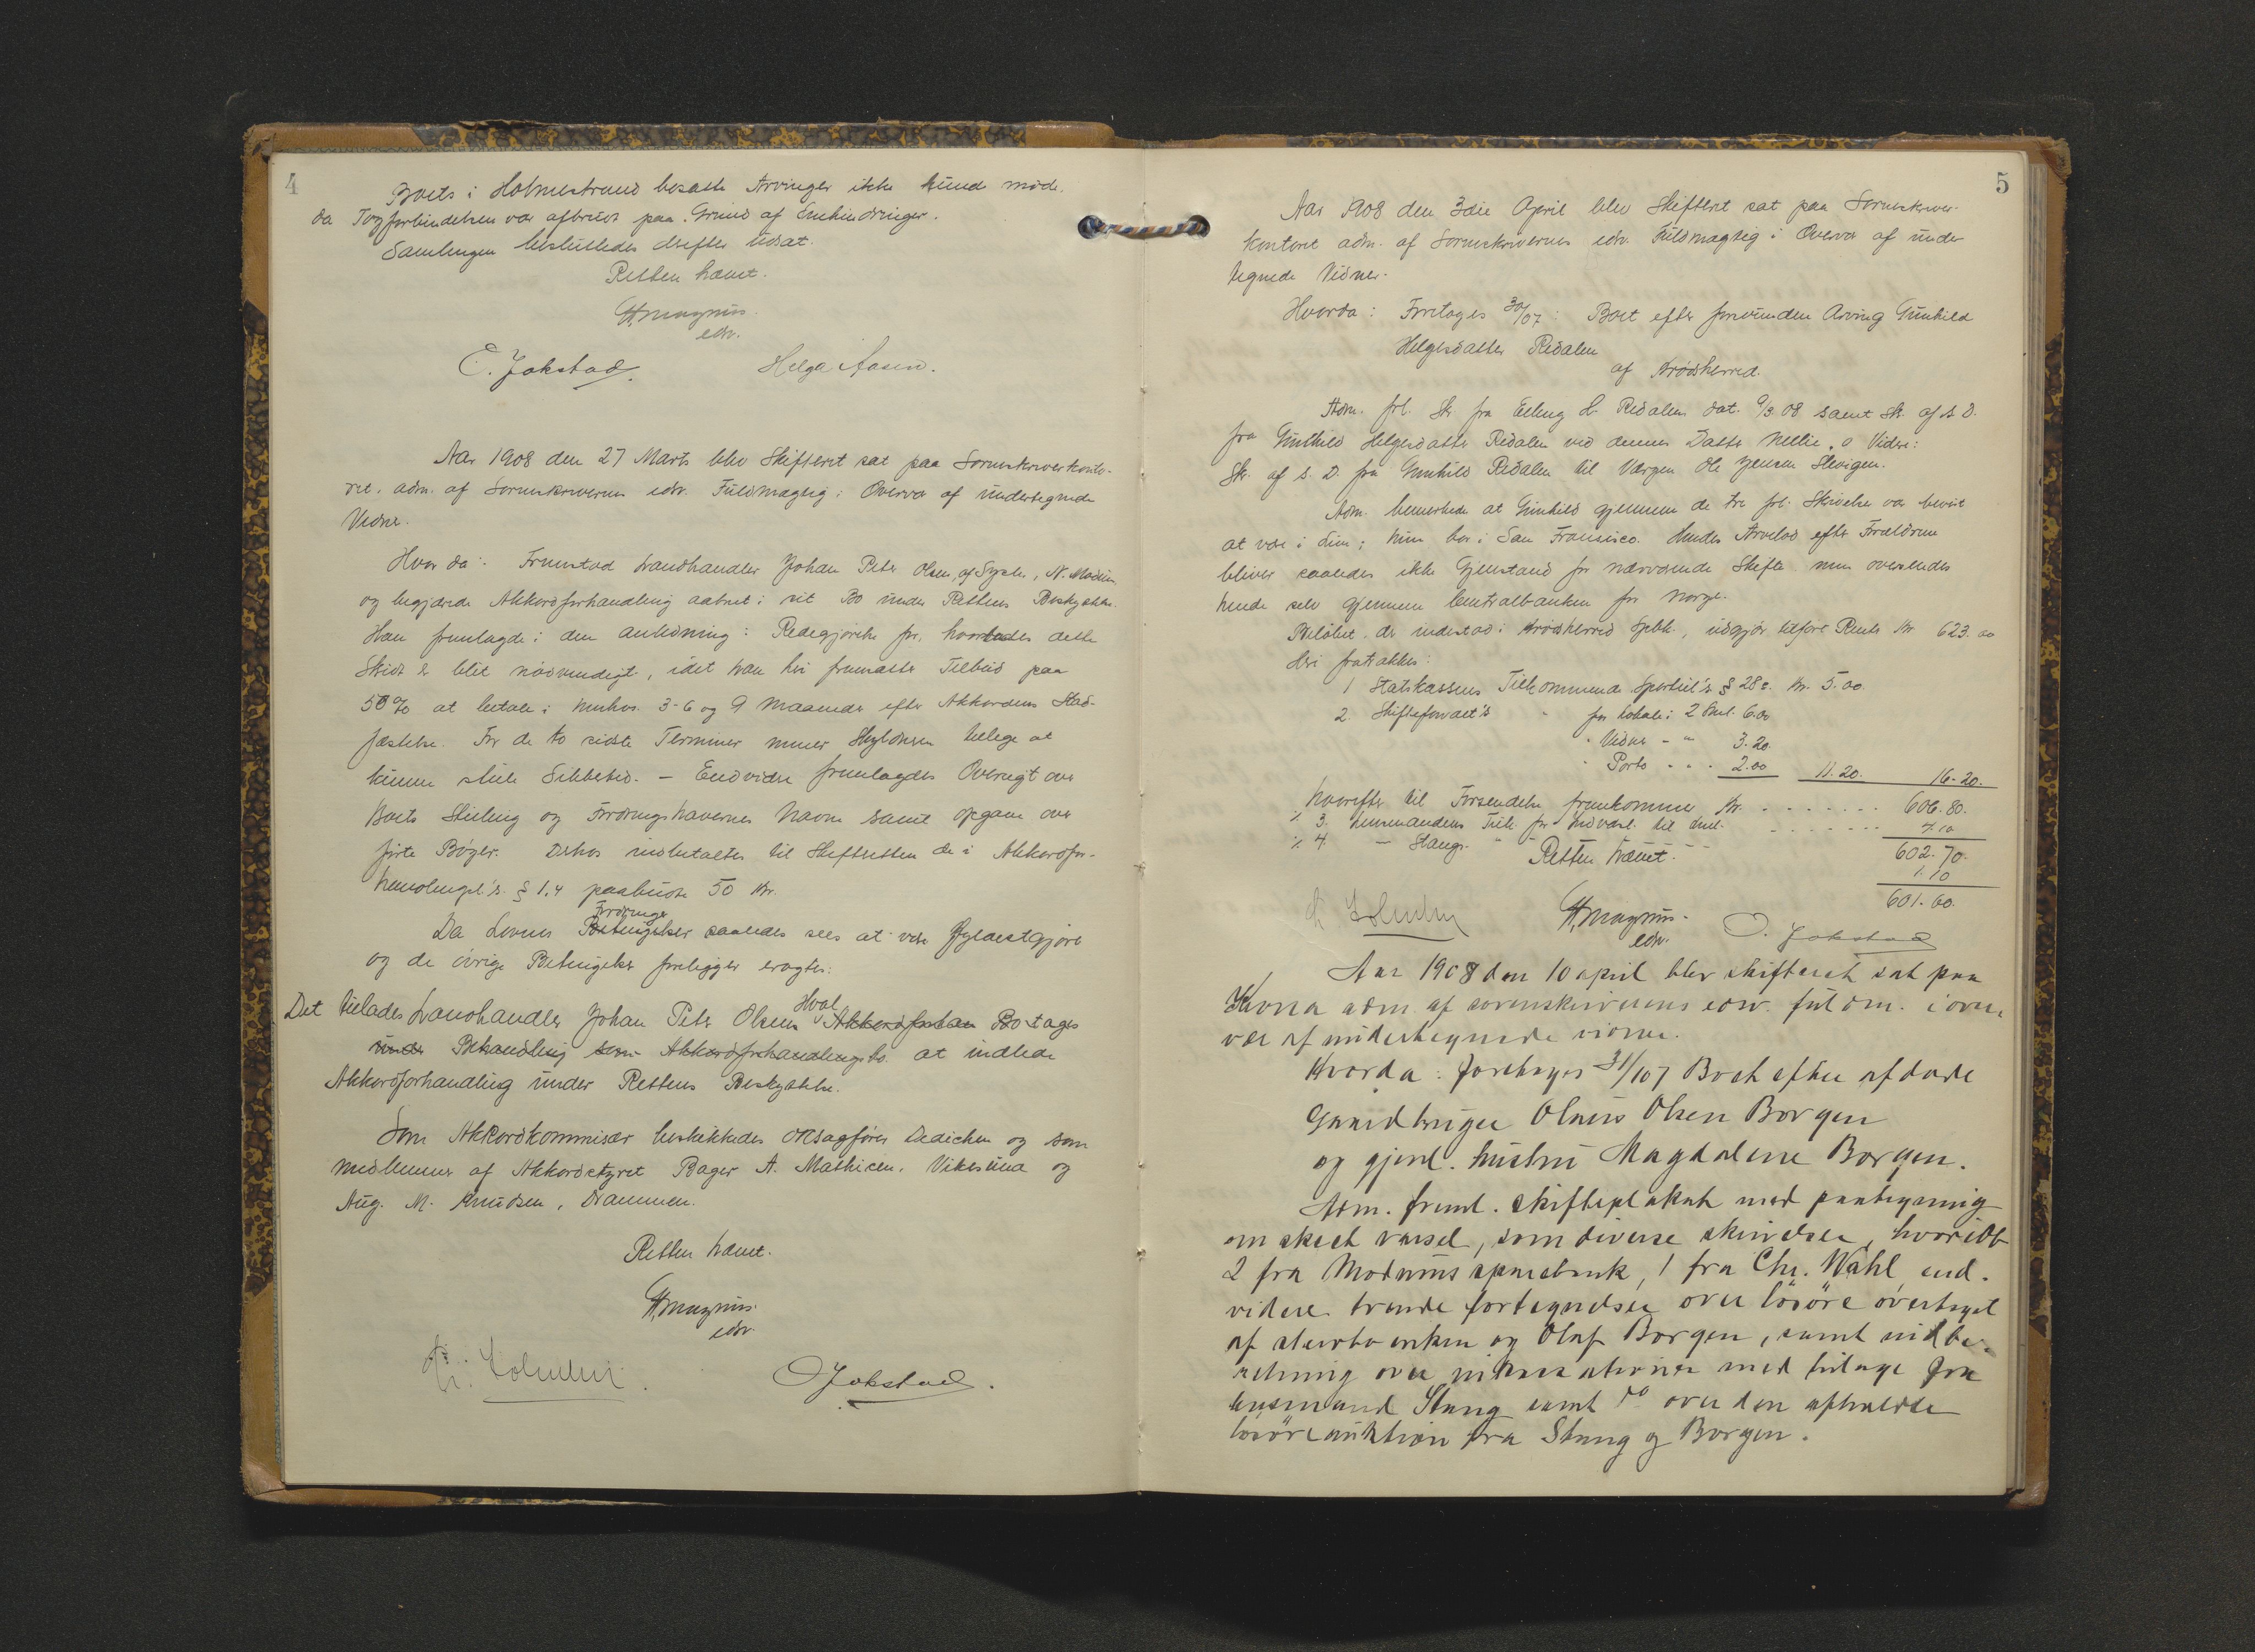 4
Boets i Holmestrand bosatte Arvinger ikke kunde møde.
da Togforbindelsen var afbrudt paa Grund af Snehindringer.
Samlingen besluttedes derfter udsat.
Retten hævet.
Magnus
edsv.
E. Jokstad. Helga Aasen.
Aar 1908 den 27 Marts blev Skifteret sat paa Sorenskriverkonto-
ret. adm. af Sorenskriverens edsv. Fuldmægtig i Overvær af undertegnede
Vidner.
Hvor da: Fremstod Landhandler Johan Peter Olsen, af Sysle, N. Modum
og begjærede Akkordforhandling aabnet i sit Bo under Rettens Beskyttelse.
Han fremlagde i den anledning: Redegjørelse for, hvorledes dette
Skridt er blit nødvendigt, idet han heri fremsatte Tilbud paa
50% at betale i henhv. 3-6 og 9 Maaneder efter Akkordens Stad-
fæstelse. For de to sidste Terminer mener Skyldneren tillige at
kunne stille Sikkerhed. - Endvidere fremlagdes Oversigt over
Boets Stilling og Fordringshavernes Navne samt opgave over
førte Bøger. Derhos indbetaltes til Skifteretten de i Akkordfor-
handlingsl's. § 1,4 paabudte 50 Kr.
Fordringer
Da Lovens Betingelser saaledes sees at være fyldestgjort
og de øvrige Betingelser foreligger eragtes:
Hval
Det tillades Landhandler Johan Peter Olsen Akkordforhan Bo tages
under Behandling som Akkordforhandlingsbo. at indlede
Akkordforhandling under Rettens Beskyttelse.
Som Akkordkommisær beskikkedes ORsagfører Dedichen og som
medlemmer af Akkordstyret Bager A. Mathisen, Vikesund og
Aug. M. Knudsen, Drammen.
Retten hævet.
Magnus.
edsv.
Jokstad.
5
Aar 1908 den 3die April blev Skifteret sat paa Sorenskriver-
kontoret adm. af Sorenskriverens edsv. Fuldmægtig i Overvær af under
tegnede Vidner.
Hvorda: Foretoges 30/07: Boet efter forsvunden Arving Gunhild
Helgesdatter Redalen
af Krødsherred.
Adm. frl. Skr. fra Elling H. Redalen dat. 9/3 08 samt Skr. af s. D.
fra Gunhild Helgesdatter Redalen ved dennes Datter Nellie. o Videre:
Skr. af s. D. fra Gunhild Redalen til Værgen Ole Jensen Slevigen.
Adm. bemerkede at Gunhild gjennem de tre frl. Skrivelser var bevist
at være i Live; hun bor i San Francisco. Hendes Arvelod efter Forældrene
bliver saaledes ikke Gjenstand for nærværende Skifte men oversendes
hende selv gjennem Centralbanken for Norge.
Beløbet, der indestod i Krødsherred Spbk., udgjør tilført Rente Kr 623.00
Heri fratrækkes:
1 Statskassens Tilkommende Sportel's § 28c. Kr. 5.00.
2. Skifteforvalt's " for Lokale i 2 Saml. 6.00
" Vidner - " 3.20.
" Porto - - - 2.00 11.20. 16.20.
hvorefter til Forsendelse fremkommer Kr. . . . . . . . 606.80.
% 3. Lensmandens Tilk. for Indvarsl. til Saml. . . . . . . . 4.10
% 4. - Stangs. " " - - - - 602.70.
Retten hævet. 1.10
601.60.
Magnus.
edsv. Jokstad
Aar 1908 den 10 april blev skifteret sat paa
Kovna adm. af sorenskriverens edsv. fuldm. i over
vær af undertegnede vidner.
Hvorda: foretoges 31/107 Boet efter afdøde
Gaardbruger Olaus Olsen Borgen
og gjenl. hustru Magdalene Borgen.
Adm. freml. skifteplakat med paategning
om skeet varsel, som diverse skrivelser, hvoribl
2 fra Modums sparebank, 1 fra Chr. Wahl end.
videre trende fortegnelser over løsöre overtaget
af stervboenken og Olaf Borgen, samt indbe-
retning over auktionen med bilage fra
lensmand Stang samt do over den afholdte
løsöreauktion fra Stang og Borgen.